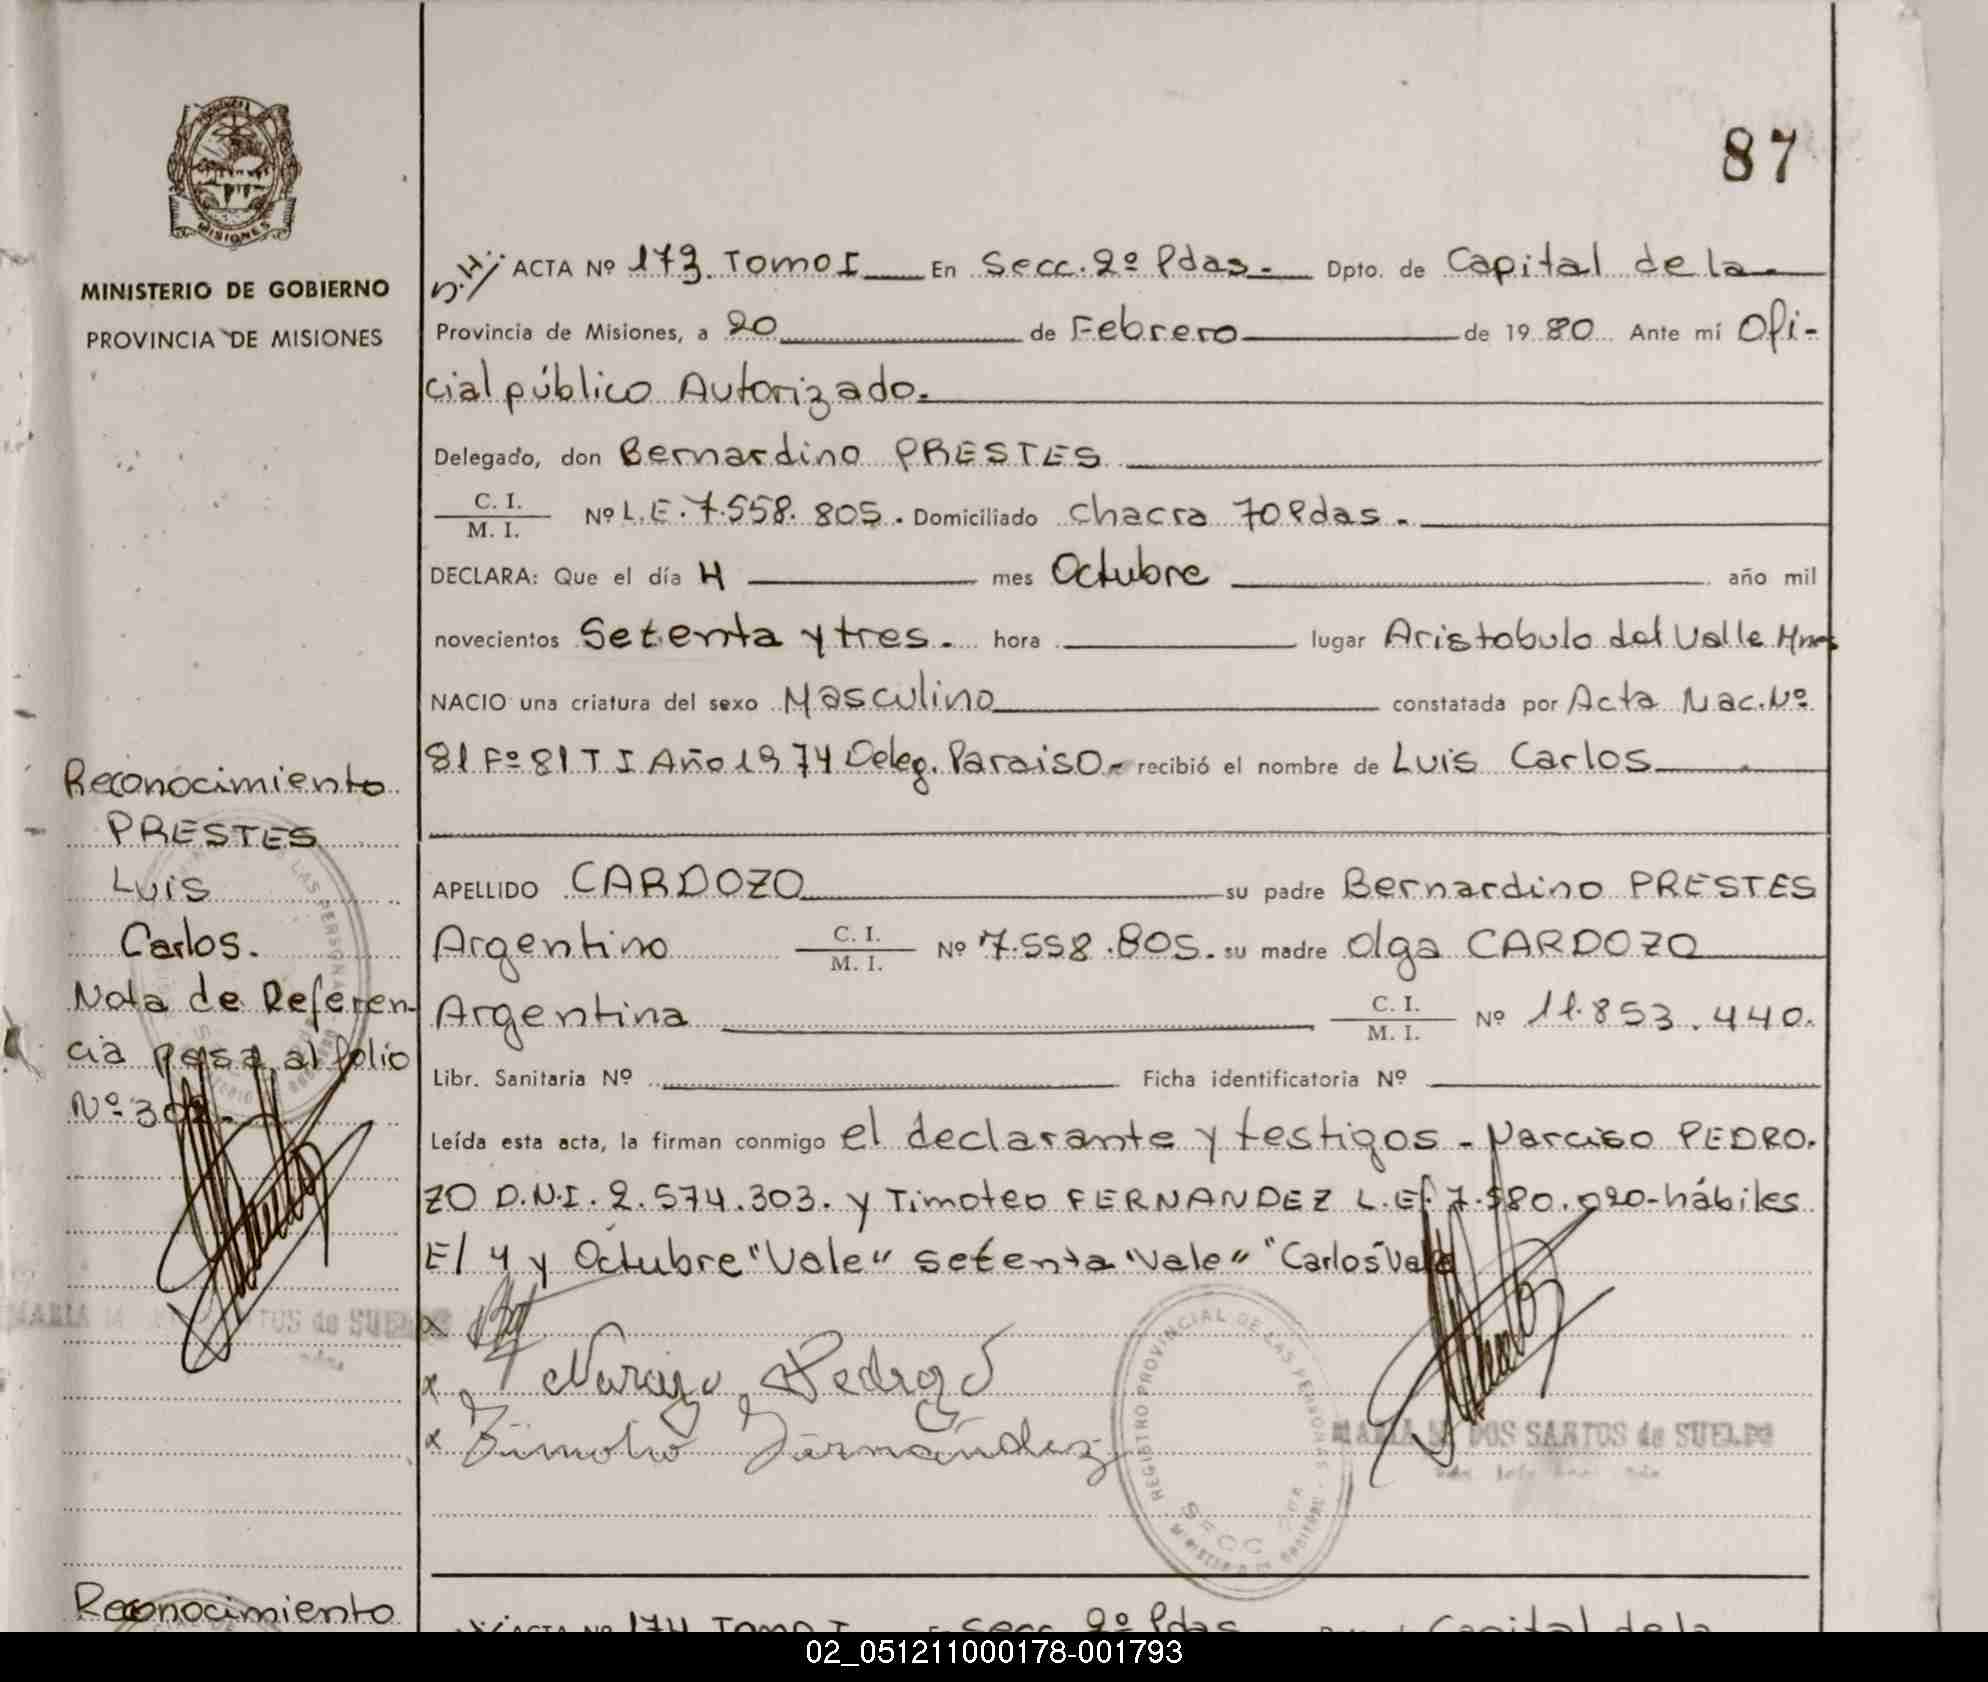 87
PROVINCIA
MISIONES
MINISTERIO DE GOBIERNO
PROVINCIA DE MISIONES
ACTA Nº 173 Tomo I En Secc. 2º Pdas. Dpto. de Capital de la
Provincia de Misiones, a 20 de Febrero de 1980 Ante mí Ofi-
cial público Autorizado.
Delegado, don Bernardino PRESTES
C. I.
M. I. Nº L.E. 7.558.805. Domiciliado chacra 70 Pdas.
DECLARA: Que el día 4 mes Octubre año mil
novecientos Setenta y tres. hora lugar Aristobulo del Valle Mnes
NACIO una criatura del sexo Masculino constatada por Acta Nac. Nº
81 Fº 81 T I Año 1974 Deleg. Paraiso- recibió el nombre de Luis Carlos
APELLIDO CARDOZO su padre Bernardino PRESTES
Argentino C. I.
M. I. Nº 7.558.805. su madre Olga CARDOZO
Argentina C. I.
M. I. Nº 11.853.440.
Libr. Sanitaria Nº Ficha identificatoria Nº
Leída esta acta, la firman conmigo el declarante y testigos - Narciso PEDRO.
ZO D.N.I. 2.574.303. y Timoteo FERNANDEZ L.E. 7.580.020-hábiles
El 4 y Octubre "Vale" setenta "Vale" "Carlos" Vale
x
x Narciso Pedrozo
x Timoteo Fernández
REGISTRO PROVINCIAL DE LAS PERSONAS
MARIA DOS SANTOS de SUELDO
Reconocimiento
PRESTES
Luis
Carlos.
Nota de Referen-
cia pasa al folio
Nº
MARIA TOS de SUELDO
Reconocimiento
ACTA Nº 174 Tomo I En Secc. 2º Pdas Capital de la
02_051211000178-001793